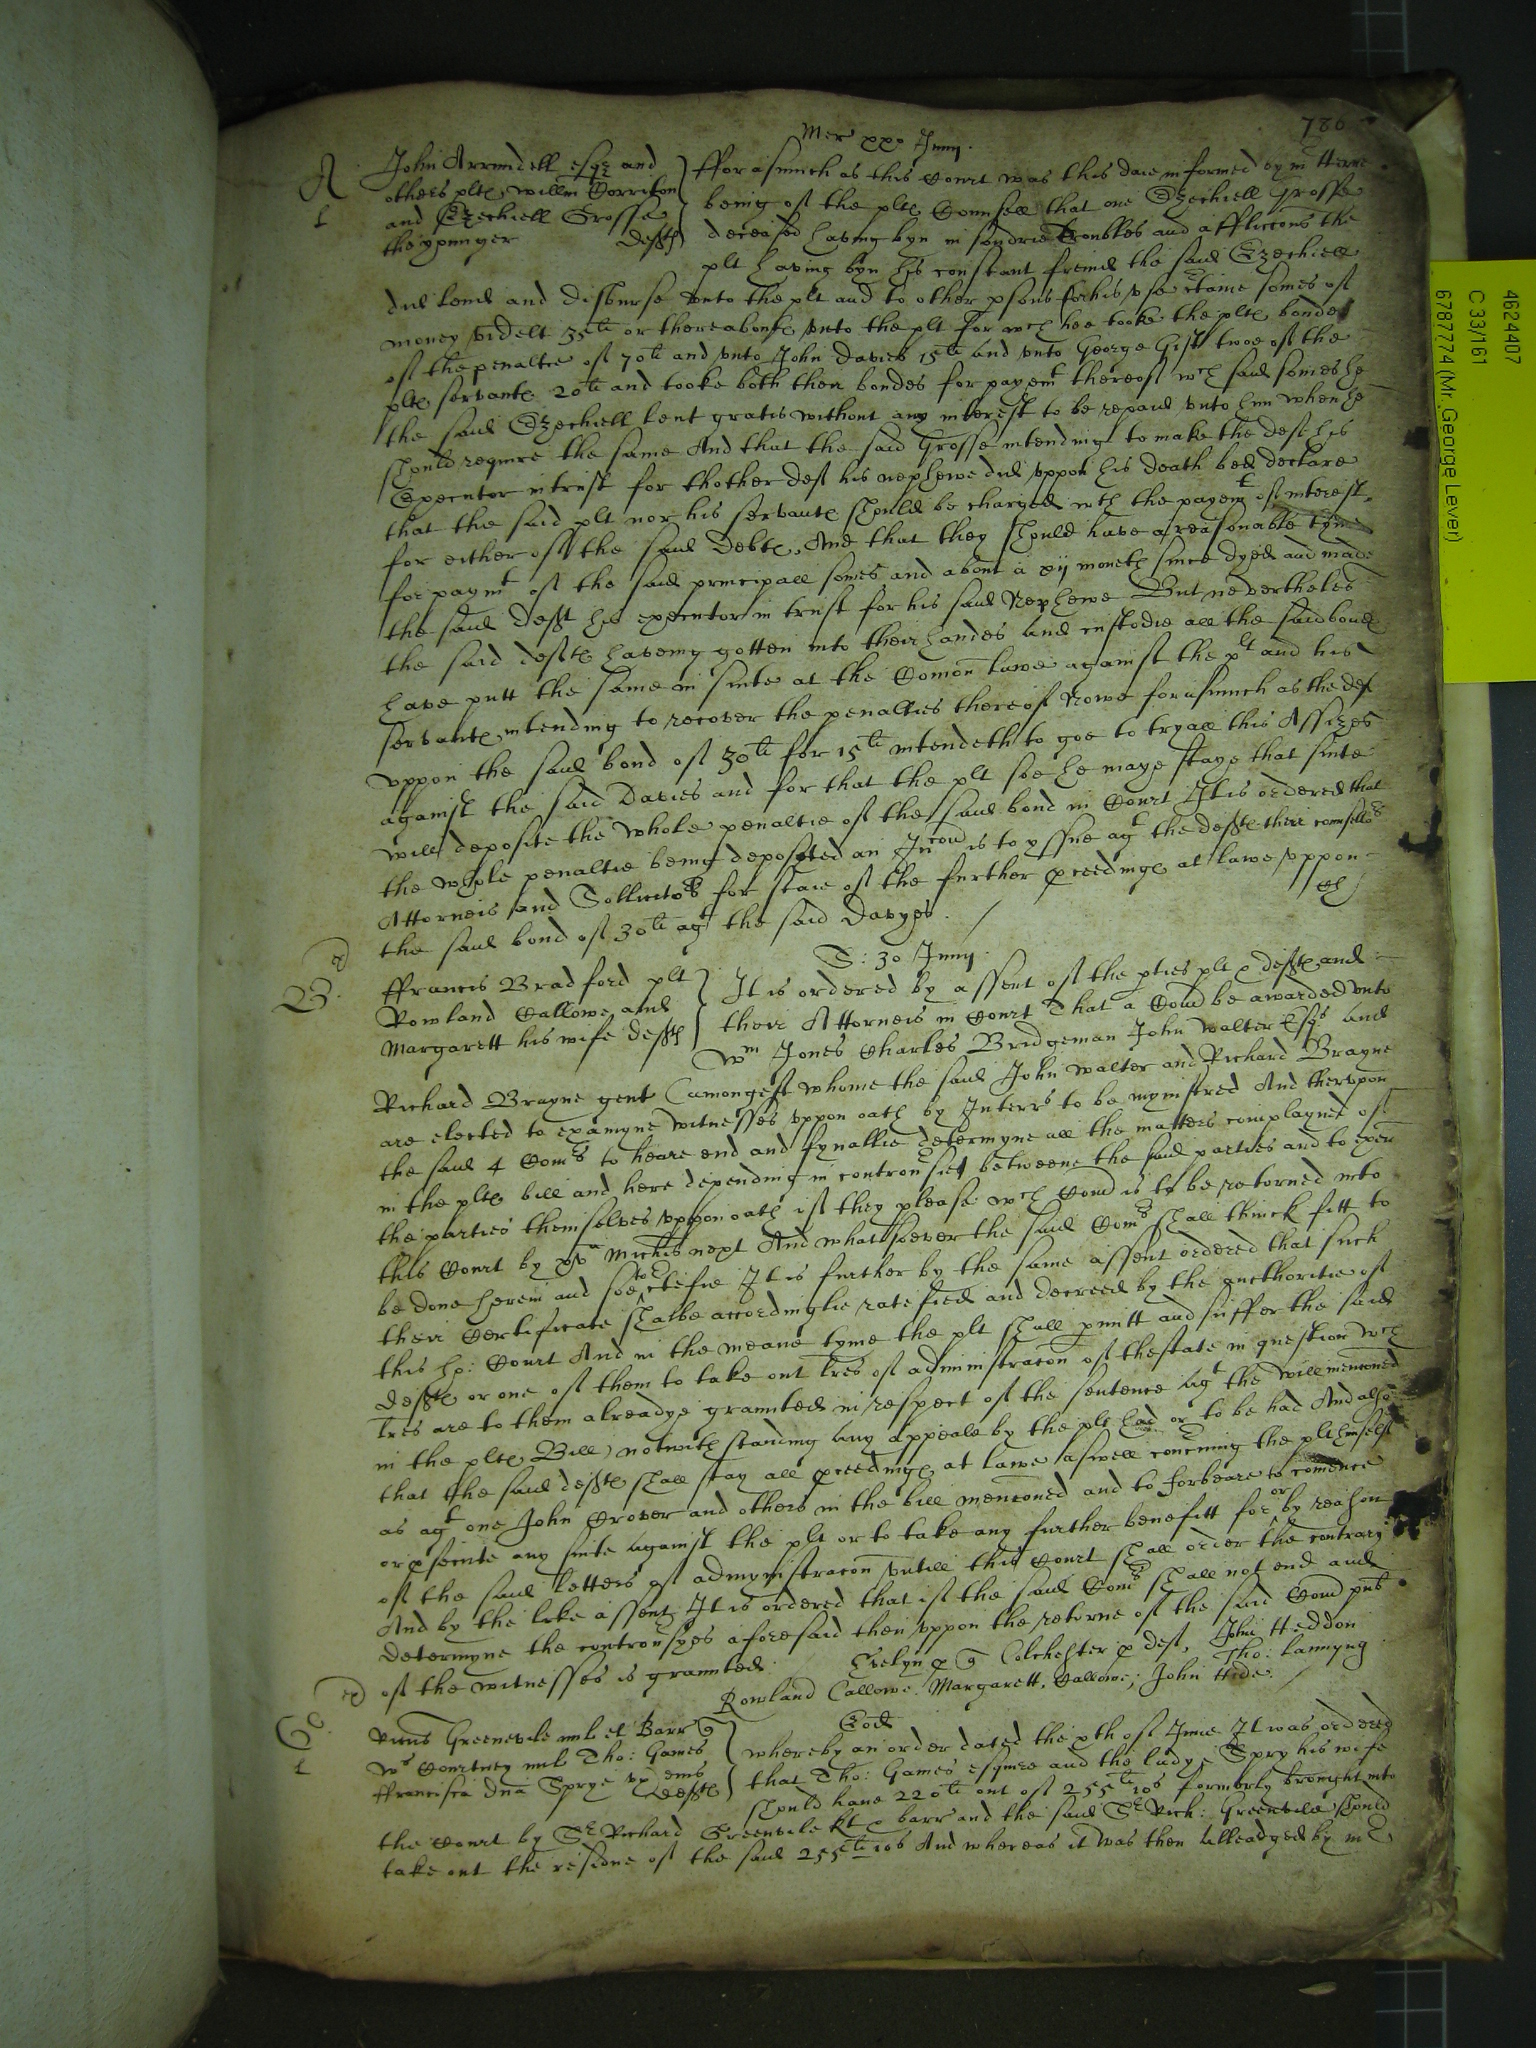 786
Mer xxo Junij
A John Arrundell esqr and
others plts, willm Corriton
and Ezechiell Grosse
the younger defts
L
fforasmuch as this Court was this daie informed by mr
being of the plts Counsell that one Ezechiell Grosse
deceased having byn in sondrie troubles and afflictions the
plt having byn his constant freind the said Ezechiell
did lend and disburse unto the plt and to other psons for his use ctaine somes of
money videlt 35li or thereabouts unto the plt for wch hee tooke the plts bonde
of the penaltie of 70li and unto John Davies 15li and unto George Gist twoe of the
plts servants 20li and tooke both their bondes for payemt thereof wch said somes he
the said Ezechiell lent gratis without any interest to be repaid unto him when he
should require the same And that the said Grosse intending to make the deft his
Executor in trust for thother deft his nephewe did uppon his death bed declare
that the said plt nor his servants should be charged wth the payemt of interest
for either of the said Debts, And that they should have a reasonable tyme
for paymt of the said principall somes and about a xij moneth since dyed and made
the said deft his executor in trust for his said Nephewe But nevertheles
the said defts haveing gotten into their handes and custodie all the said bonds
have putt the same in suite at the Comon lawe against the plt and his
servants intending to recover the penalties thereof Nowe forasmuch as the deft
uppon the said bond of 30li for 15li intendeth to goe to tryall this Assizes
against the said Davies and for that the plt soe he maye staye that suite
will deposite the whole penaltie of the said bond in Court It is ordered that
the whole penaltie being deposyted an Inconn is to yssue agt the defts their counsellors
Attorneis and Sollicitors for staie of the further pceedings at lawe uppon
the said bond of 30li agt the said Davyes.
S: 30 Junij
B ffrancis Bradford plt
Rowland Callowe and
Margarett his wife defts
It is ordered by assent of the pties plt & defts and
their Attorneis in Court That a Com be awarded unto
Wm Jones Charles Bridgeman John Walter Esqrs and
Richard Brayne gent (amongest whome the said John Walter and Richard Brayne
are elected to examyne witnesses uppon oath by Interrs to be mynistred And therupon
the said 4 Coms to heare end and fynallie determyne all the matters complayned of
in the plts bill and here depending in controusie betweene the said parties and to exen
the parties themselves uppon oath if they please wch Com is to be retorned into
this Court by xva Michis next And whatsoever the said Coms shall thinck fitt to
be done herein and soe to ctefie It is further by the same assent ordered that such
their Certificate shalbe accordinglie ratefied and decreed by the aucthoritie of
this ho: Court And in the meane tyme the plt shall pmitt and suffer the said
defts or one of them to take out lres of administracon of thestate in question wch
lres are to them alreadye graunted in respect of the sentence agt the will mencioned
in the plts Bill notwithstanding any appeale by the plt had or to be had And also
that the said defts shall stay all pceedings at lawe aswell concning the plt himself
as agt one John Grover and others in the bill mencioned and to forbeare to comence
or psecute any suite against the plt or to take any further benefitt for or by reason
of the said letters of admynistracon untill this Court shall order the contrary
And by the like assent It is ordered that if the said Coms shall not end and
determyne the controusyes aforesaid then uppon the retorne of the said Com pub
of the witnesses is graunted. Evelyn p q Colchester p def, John Heddon
Rowland Callowe, Margarett, Callowe; John Hide. Tho: Lannyng
Eod
G Ricus Greenevile mil et Barr q
Ws Courtney mil Tho: Games
ffrancisca dna Sprye ux eius
defts
L
whereby an order dated the xth of June It was ordered
that Tho: Games esquire and the ladye Spry his wife
should have 220li out of 255li 10s formerly brought into
the Court by Sr Richard Greenevile kt & barr and the said Sr Rich: Greenevile should
take out the residue of the said 255li 10s And whereas it was then alleadged by mr
4624407
C 33/161
6787774 (Mr. George Lever)